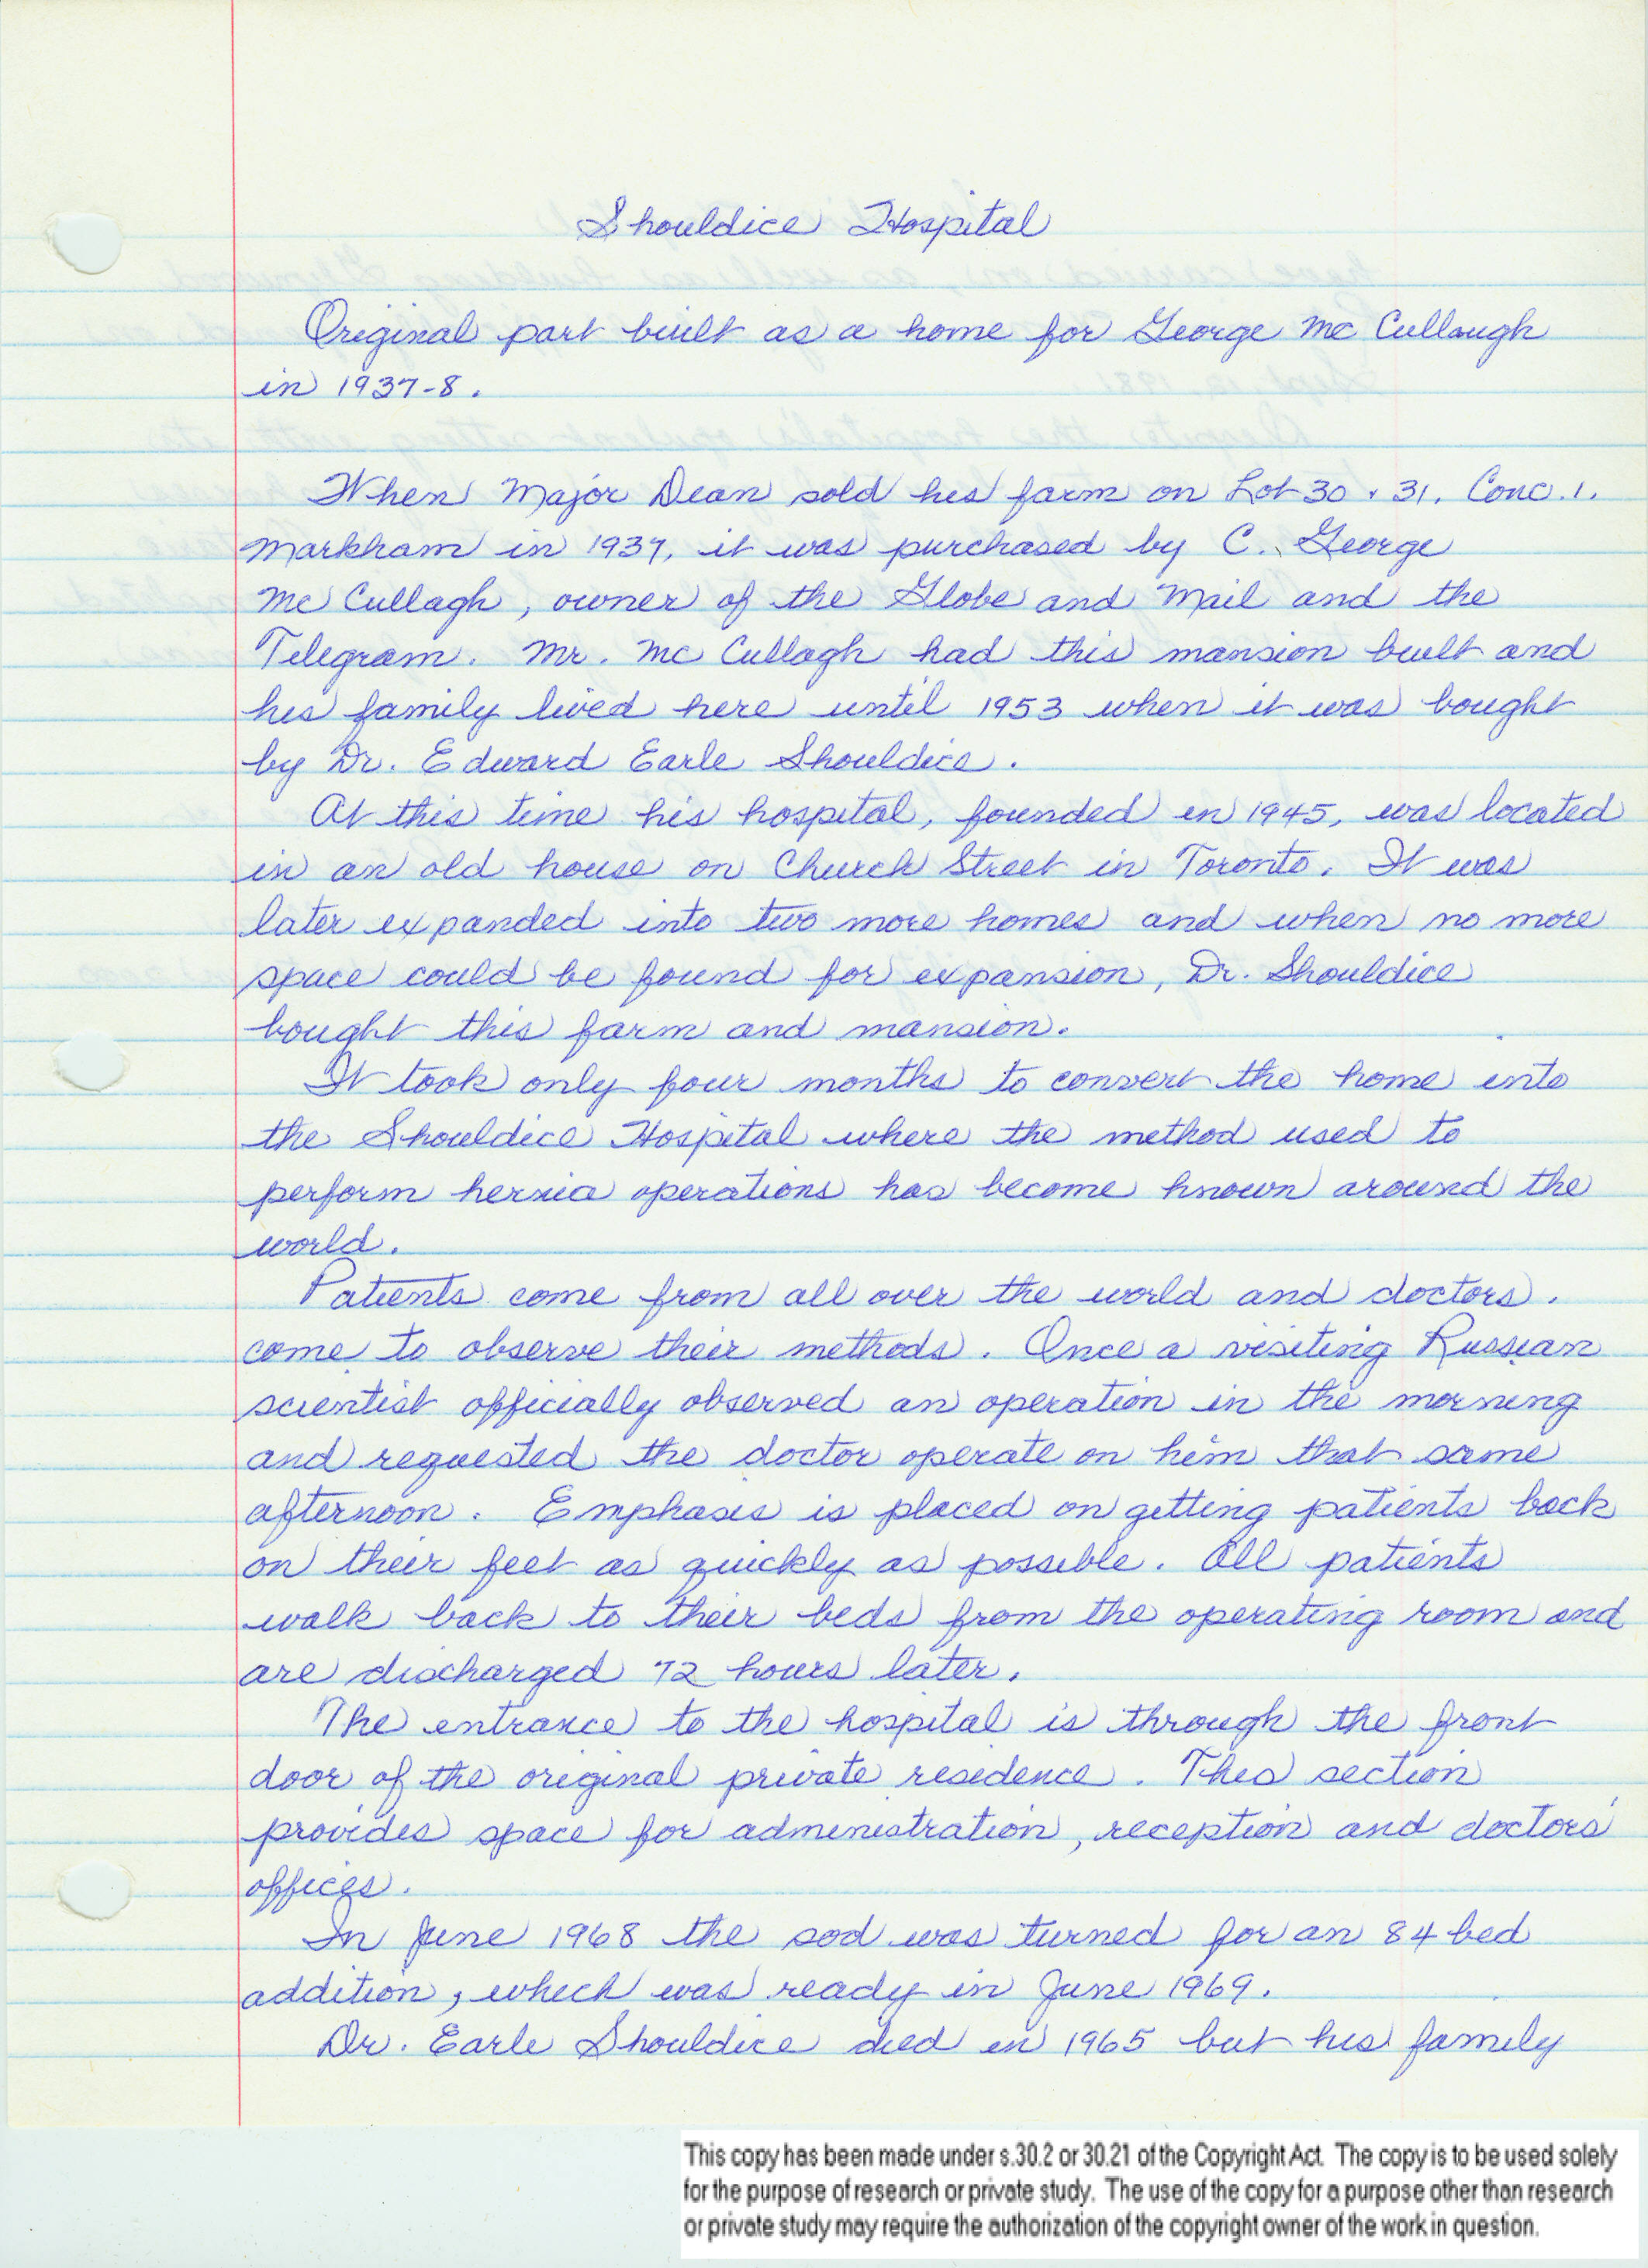 Shouldice Hospital
Original part built as a home for George Mc Cullaugh
in 1937-8.
When Major Dean sold his farm on Lot 30 & 31, Conc. 1.
Markham in 1937, it was purchased by C. George
Mc Cullagh, owner of the Globe and Mail and the
Telegram. Mr. Mc Cullagh had this mansion built and
his family lived here until 1953 when it was bought
by Dr. Edward Earle Shouldice.
At this time his hospital, founded in 1945, was located
in an old house on Church Street in Toronto. It was
later expanded into two more homes and when no more
space could be found for expansion, Dr. Shouldice
bought this farm and mansion.
It took only four months to convert the home into
the Shouldice Hospital where the method used to
perform hernia operations has become known around the
world.
Patients come from all over the world and doctors.
come to observe their methods. Once a visiting Russian
scientist officially observed an operation in the morning
and requested the doctor operate on him that same
afternoon. Emphasis is placed on getting patients back
on their feet as quickly as possible. All patients
walk back to their beds from the operating room and
are discharged 72 hours later.
The entrance to the hospital is through the front
door of the original private residence. This section
provides space for administration, reception and doctors'
offices.
In June 1968 the sod was turned for an 84 bed
addition, which was ready in June 1969.
Dr. Earle Shouldice died in 1965 but his family
This copy has been made under s.30.2 or 30.21 of the Copyright Act. The copy is to be used solely
for the purpose of research or private study. The use of the copy for a purpose other than research
or private study may require the authorization of the copyright owner of the work in question.